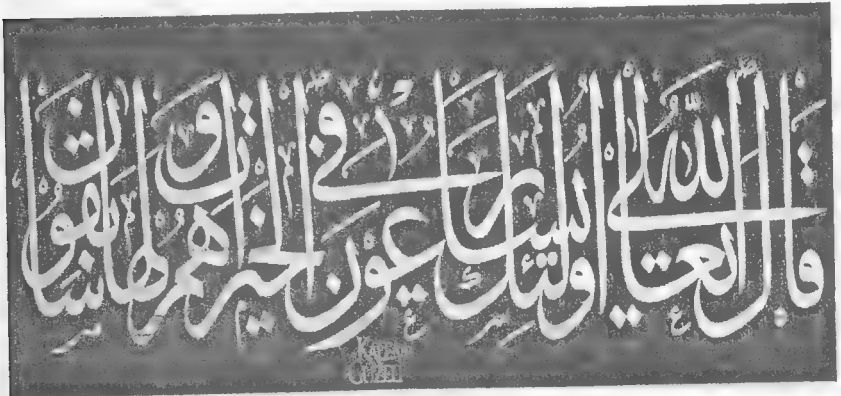 قال الله تعالى اولئك يسارعون في الخيرات وهم لها سابقون